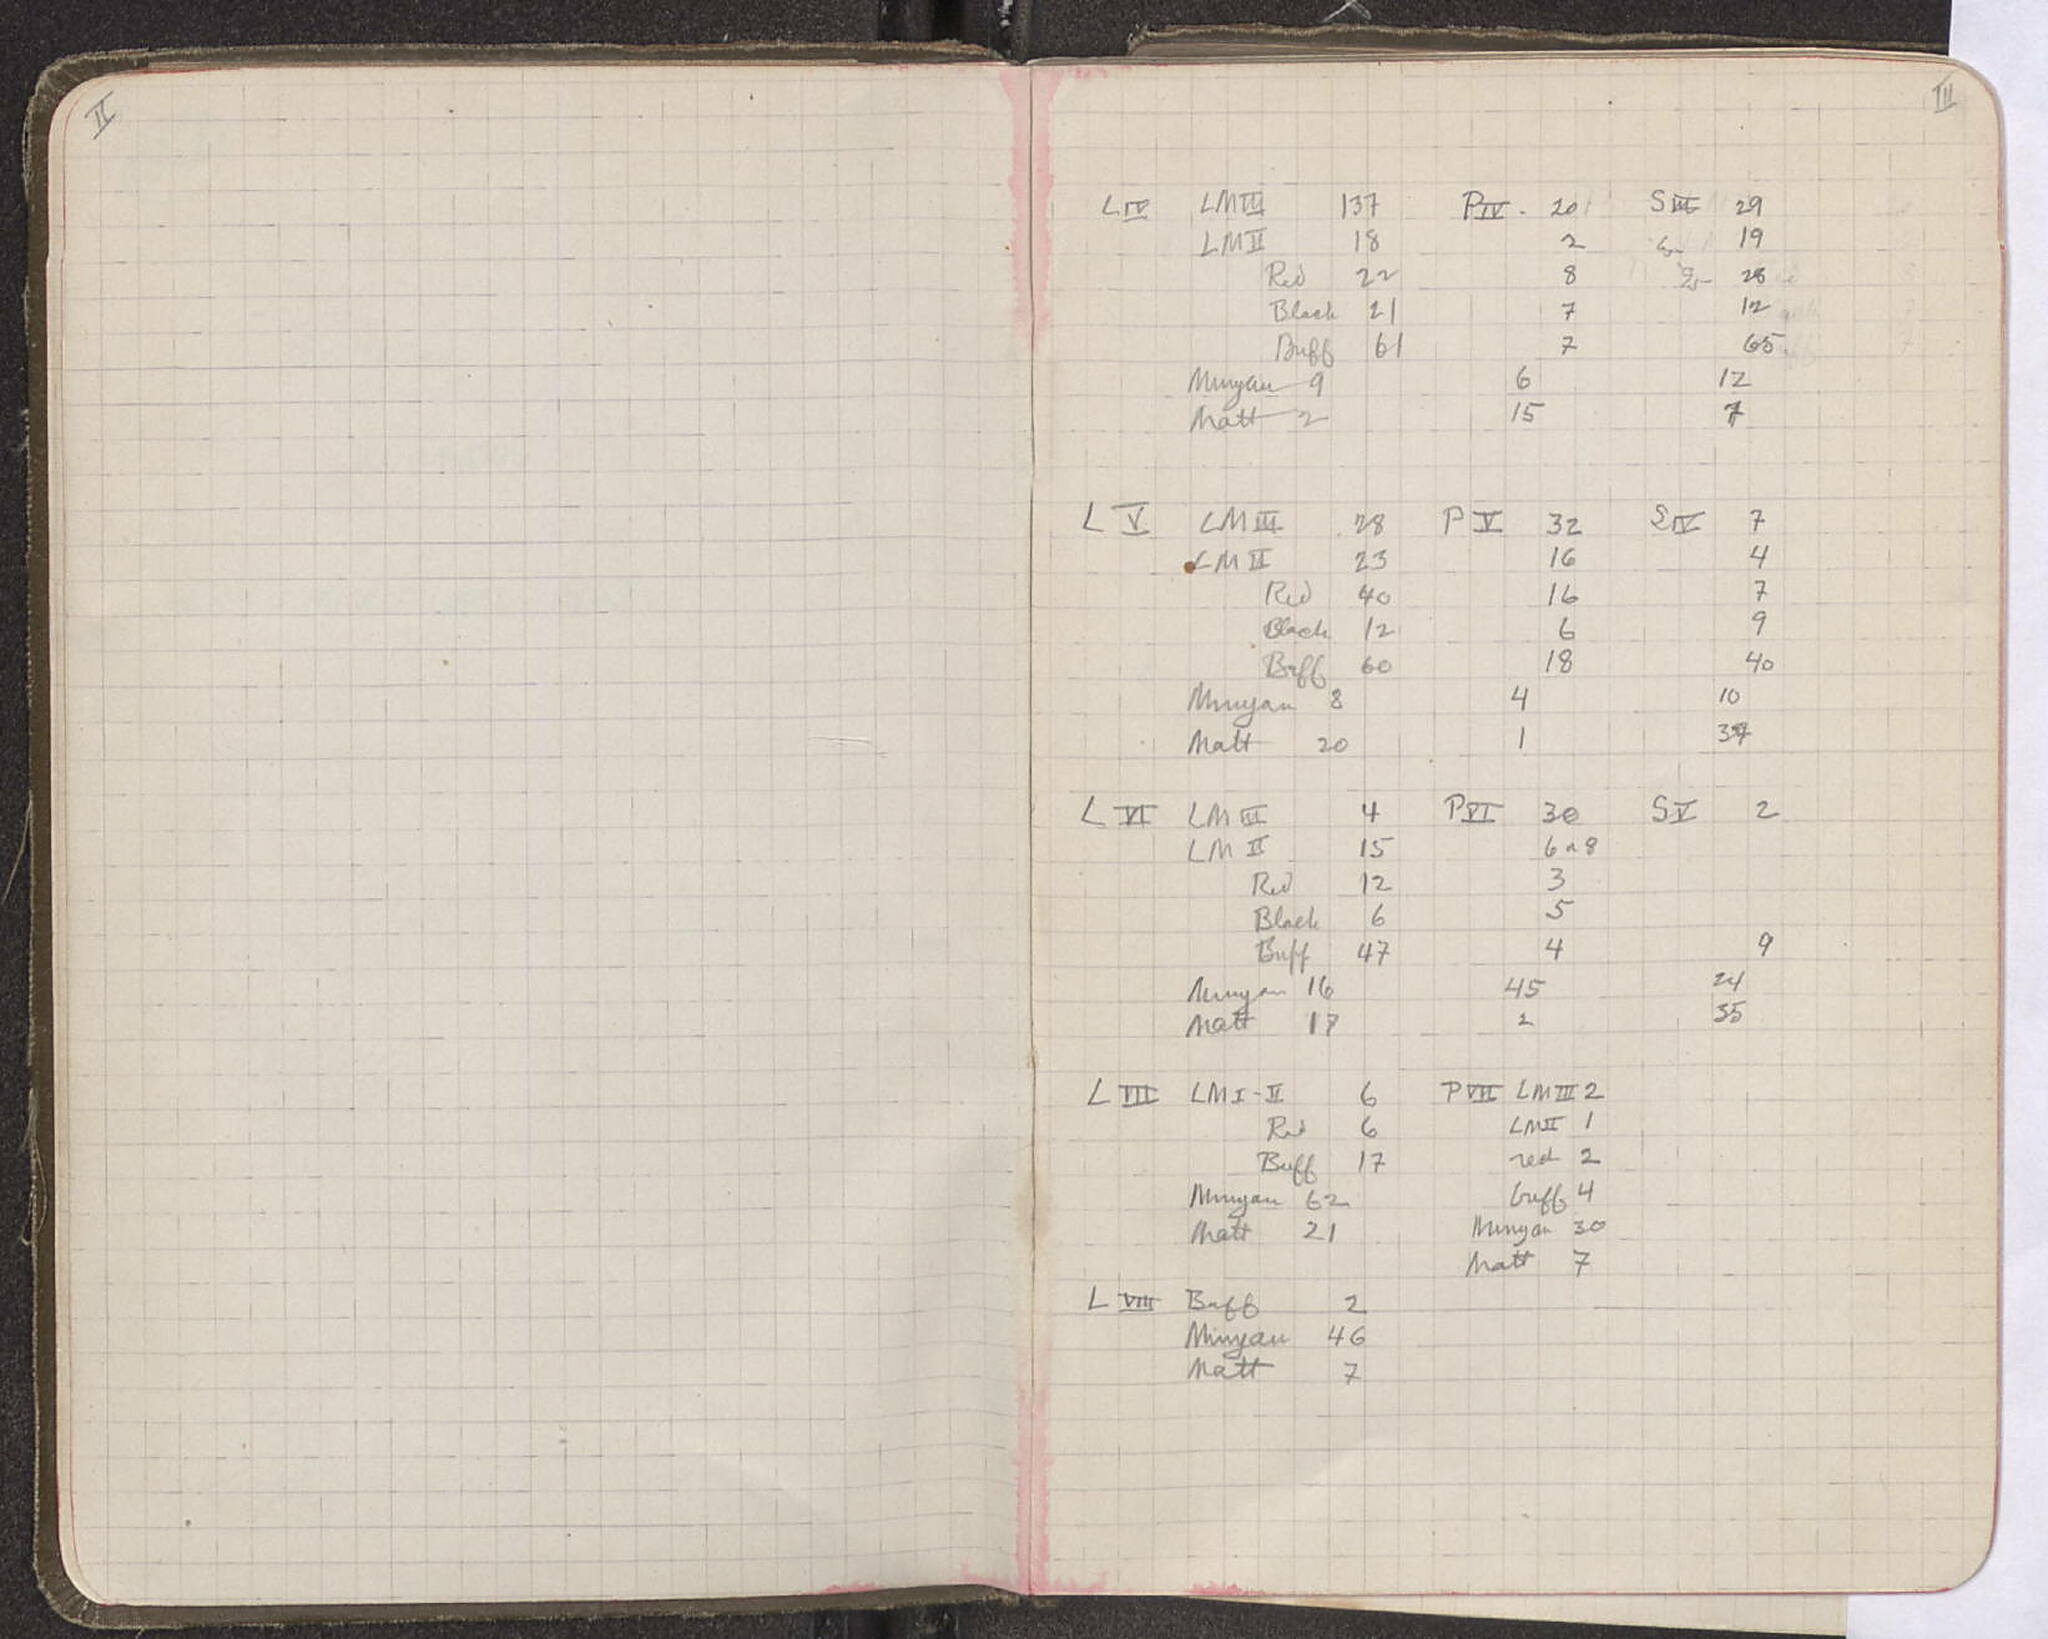 II
III
L IV LM III 137 P IV - 20 S III 29
LM II 18 2 19
Red 22 8 28
Black 21 7 12
Buff 61 7 65
Minyan 9 6 12
Matt 2 15 7
L V LM III 28 P V 32 S IV 7
LM II 23 16 4
Red 40 16 7
Black 12 6 9
Buff 60 18 40
Minyan 8 4 10
Matt 20 1
L VI LM III 4 P VI 30 S V 2
LM II 15 6 a 8
Red 12 3
Black 6 5
Buff 47 4 9
Minyan 16 45 24
Matt 17 2 35
L VII LM I-II 6 P VII LM III 2
Red 6 LM II 1
Buff 17 red 2
Minyan 62 buff 4
Matt 21 Minyan 30
Matt 7
L VIII Buff 2
Minyan 46
Matt 7